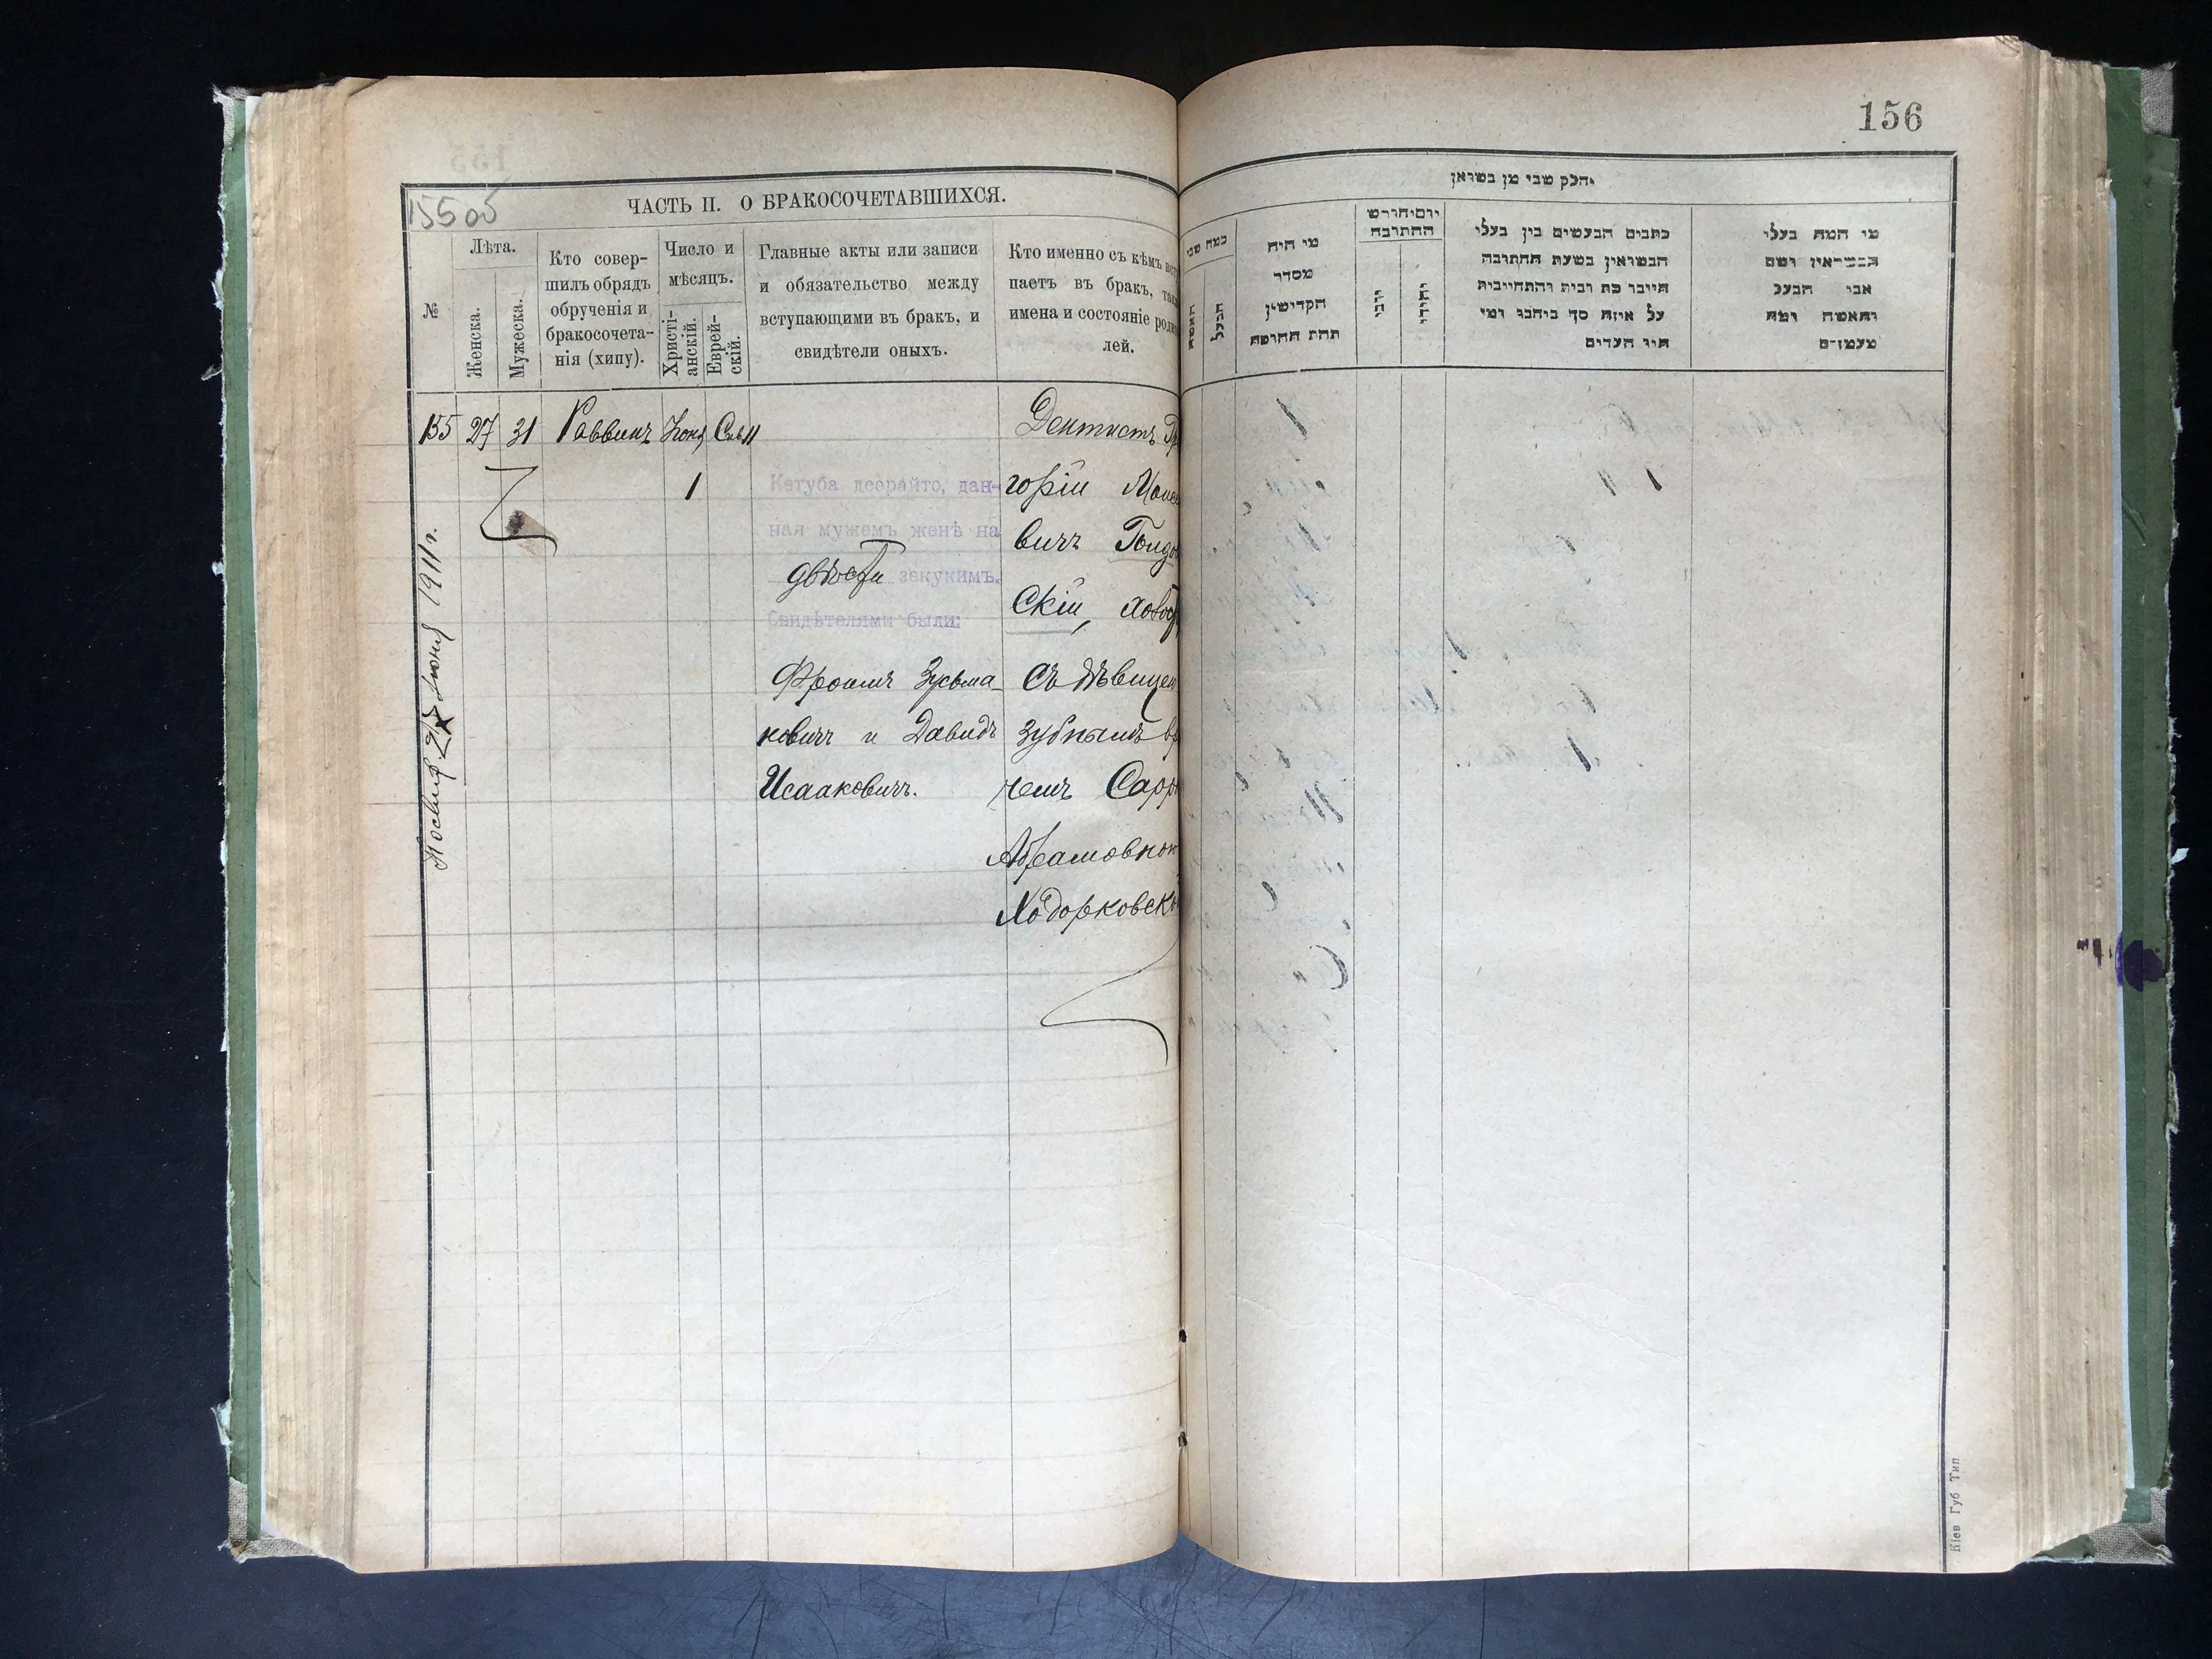 156
155об
ЧАСТЬ II. О БРАКОСОЧЕТАВШИХСЯ.
№
Лѣта.
Женска.
Мужеска.
Кто совер-
шилъ обрядъ
обрученія и
бракосочета-
нія (хипу).
Число и
мѣсяцъ.
Христі-
анскій.
Еврей-
скій.
Главные акты или записи
и обязательство между
вступающими въ бракъ, и
свидѣтели оныхъ.
Кто именно съ кѣмъ всту
паетъ въ бракъ, так
имена и состояніе родит
лей.
155 27 31 Раввинъ Іюня
1
Кетуба деорайто, дан-
ная мужемъ женѣ на
двѣсти зекукимъ.
Свидѣтелями были:
Фроимъ Зусьма-
новичъ и Давидъ
Исааковичъ.
Дентистъ Гр
горій Моисе
вичъ Голдов
скій, холост
съ дѣвицею
зубнымъ вр
чемъ Сарр
Абрамовною
Ходорковско
1911 г.
חלק שני מן נשואין
כמה שני
האשה
הבעל
מי היה
מסדר
הקדושין
תחת החופה
יום וחודש
החתונה
יוני
יהודי
כתבים הנעשים בין בעלי
הנשואין בשעת החתונה
חייבו כת ובית והתחייבות
על איזה סך ביחבו ומי
היו העדים
מי המה בעלי
הנשואין ושם
אבי הבעל
והאשה ומה
מעמדם
Кіев Губ Тип